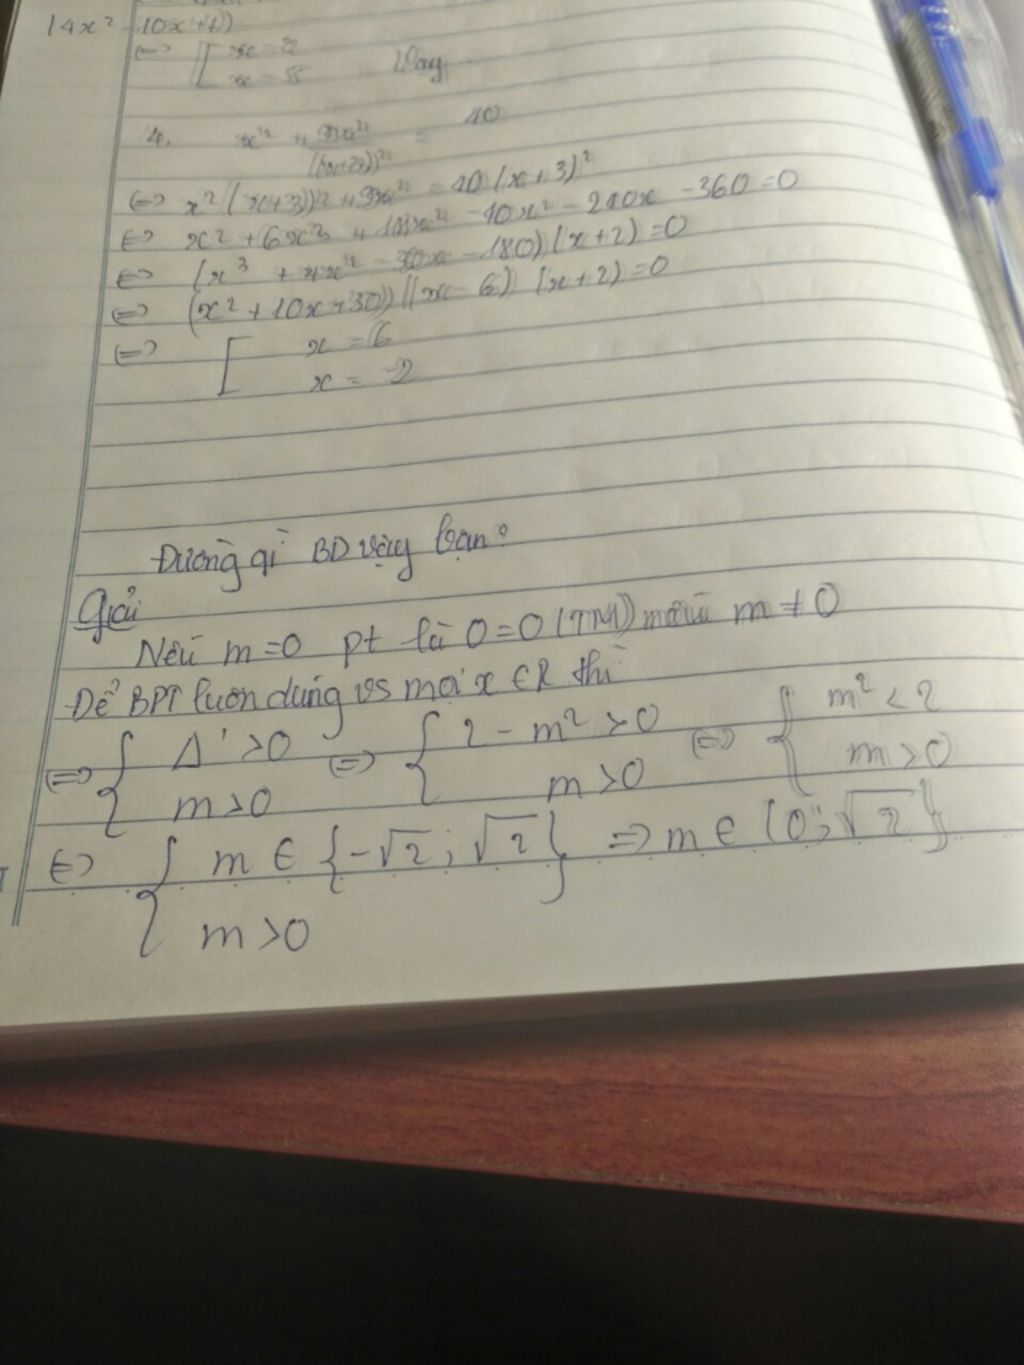 (4x² - 10x + 1)
⇔ [ x = 2
x = 5 Vậy
4. x² + = 40
⇔ x² (x+3)² + 9x² = 40 (x+3)²
⇔ - 40x² - 240x - 360 = 0
⇔ (x³ + 4x² - 30x - 180) (x+2) = 0
⇔ (x² + 10x + 30) (x - 6) (x+2) = 0
⇔ [ x = 6
x = -2
Đường gì BD vậy bạn?
Giải
Nếu m = 0 pt là 0 = 0 (TM) m ≠ 0
Để BPT luôn đúng vs mọi x ∈ R thì
⇔ { Δ' > 0 ⇔ { 2 - m² > 0 ⇔ { m² < 2
m > 0 m > 0 m > 0
⇔ { m ∈ {-√2 ; √2} ⇒ m ∈ (0 ; √2}
m > 0